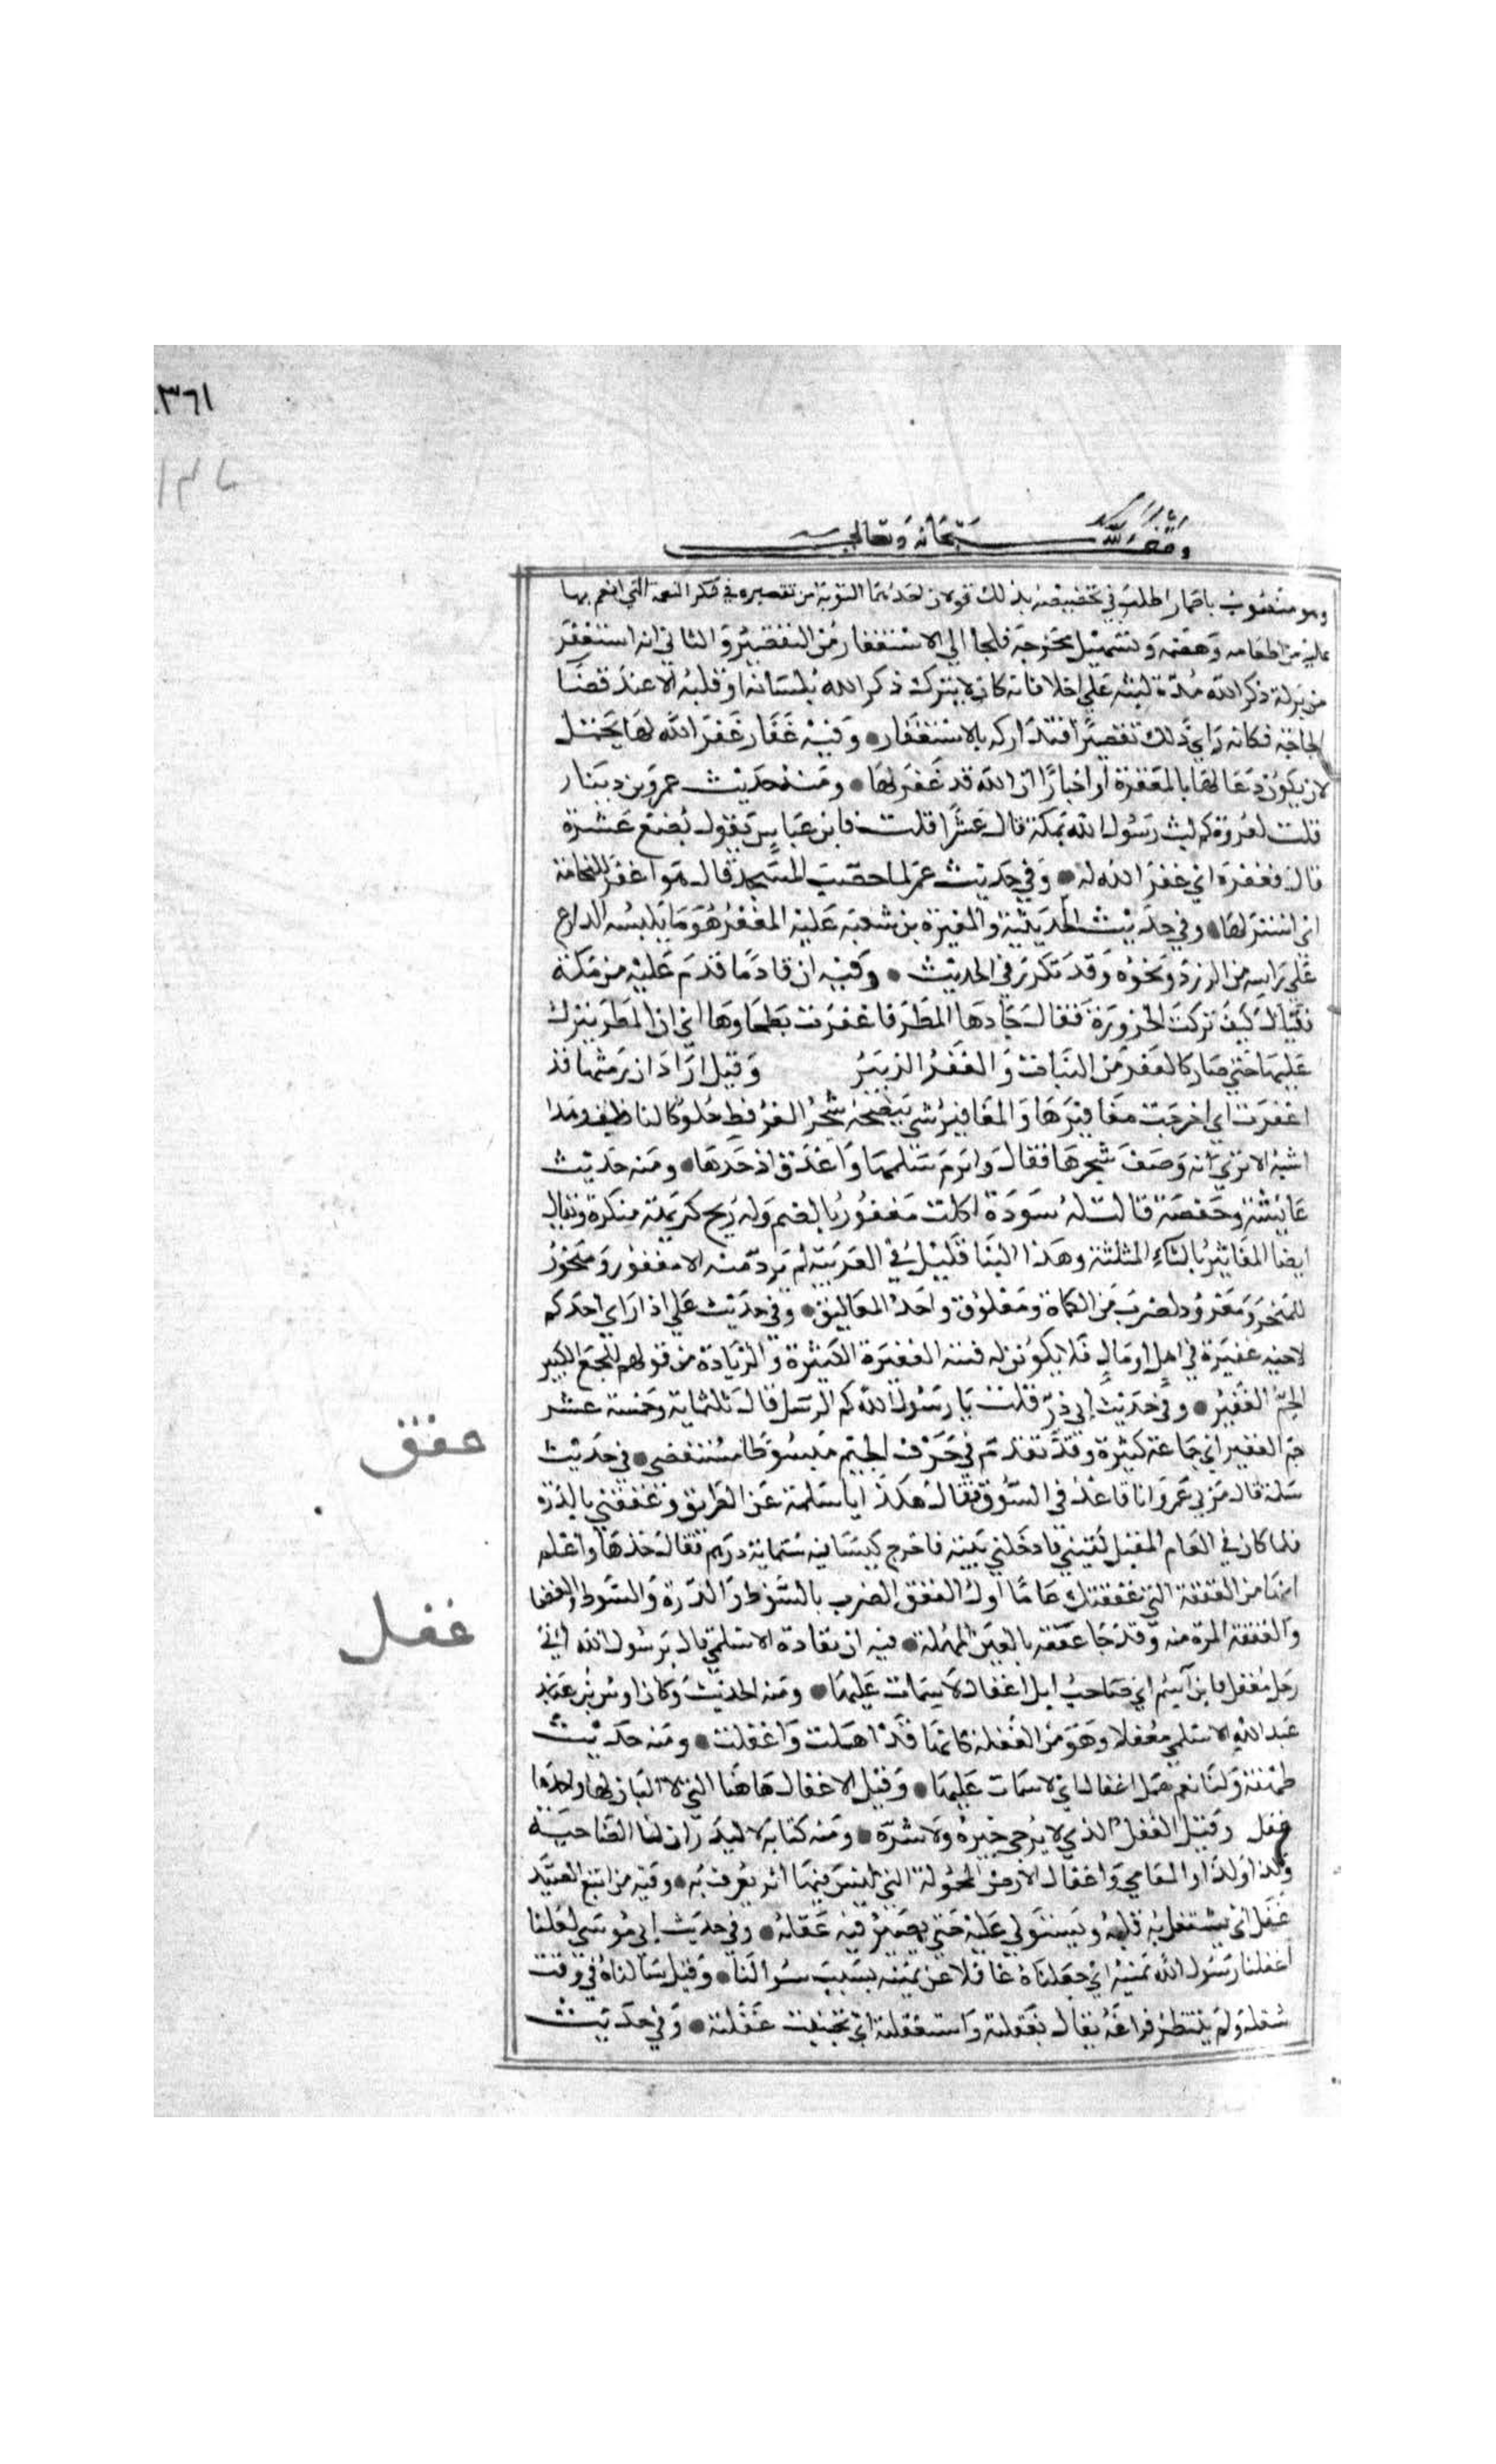 ٣٦١
وقف لله سبحانه وتعالى
وهو منصوب باضمار اطلب في تخصيصه بذلك قولان احدهما التوبة من تقصيره في شكر النعمة التي انعم بها
عليه من اطعامه وهضمه وتسهيل مخرجه فلجا الي الاستغفار من التقصير والثاني انه استغفر
من تركه ذكر الله مدة لبثه علي الخلا فانه كان لا يترك ذكر الله بلسانه او قلبه الا عند قضا
الحاجة فكانه راي ذلك تقصيرا فتداركه بالاستغفار • وفيه غفار غفر الله لها يحتمل
لان يكون دعا لها بالمغفرة او اخبارا ان الله قد غفر لها • ومنه حديث عمرو بن دينار
قلت لعروة كم لبث رسول الله بمكة قال عشرا قلت فابن عباس يقول بضع عشرة
قال فغفره اي غفر الله له • وفي حديث عمر لما حصب المسجد قال هو اغفر للنخامة
اي استر لها • وفي حديث الحديبية والمغيرة بن شعبة عليه المغفر هو ما يلبسه الدارع
علي راسه من الزرد ونحوه وقد تكرر في الحديث • وفيه ان قادما قدم عليه من مكة
فقال كيف تركت الحزورة فقال جادها المطر فاغفرت بطحاوها اي ان المطر ينزل
عليها حتي صار كالغفر من النبات والغفر الزيبر وقيل اراد ان رمثها قد
اغفرت اي اخرجت مغافيرها والمغافير شي ينضحه شجر العرفط حلو كالناطف وهذا
اشبه الا تري انه وصف شجرها فقال وابرم سلمها واغذق اذخرها • ومنه حديث
عايشة وحفصة قالت له سودة اكلت مغفور بالضم وله ريح كريهة منكرة ويقال
ايضا المغاثير بالثاء المثلثة وهذا البنا قليل في العربية لم يرد منه الا مغفور ومنخور
للمنخر ومغرود لضرب من الكماة ومغلوق واحد المغاليق • وفي حديث علي اذا راي احدكم
لاخيه غفيرة في اهل او مال فلا يكونن له فتنه الغفيرة الكثيرة والزيادة من قولهم للجمع الكبير
الجم الغفير • وفي حديث ابي ذر قلت يا رسول الله كم الرسل قال ثلثماية وخمسة عشر
جم الغفير اي جماعة كثيرة وقد تقدم في حرف الجيم مبسوطا مستقصي • في حديث
سلمة قال مر بي عمر وانا قاعد في السوق فقال هكذا يا سلمة عن الطريق وغفقني بالدرة
فلما كان في العام المقبل لقيني فادخلني بيته فاخرج كيسا فيه ستماية درهم فقال خذها واعلم
انها من الغفقة التي غفقتك عاما اول الغفق الضرب بالسوط والدرة والسوط والعصا
والغفقة المرة منه وقد جا عفقه بالعين المهملة • فيه ان نقادة الاسلمي قال يرسول الله اني
رجل مغفل فاين اسم اي صاحب ابل اغفال لا سمات عليها • ومنه الحديث وكان اوس بن عبد
عبد الله الاسلمي مغفلا وهو من الغفلة كانها قد اهملت واغفلت • ومنه حديث
طهفة ولنا نعم همل اغفال اي لا سمات عليها • وقيل الاغفال هاهنا التي لا البان لها واحدها
غفل وقيل الغفل الذي لا يرجي خيره ولا شره • ومنه كتابه لاكيدر ان لنا الضاحية
وكذا وكذا والمعامي واغفال الارض المجهولة التي ليس فيها اثر يعرف به • وفيه من اتبع الصيد
غفل اي يشتغل به قلبه ويستولي عليه حتي يصير فيه غفلة • وفي حديث ابي موسي لعلنا
اغفلنا رسول الله يمينه اي جعلناه غافلا عن يمينه بسبب سوالنا • وقيل سالناه في وقت
شغله ولم ينتظر فراغه يقال تغفلته واستغفلته اي تحينت غفلته • وفي حديث
غفق
غفل